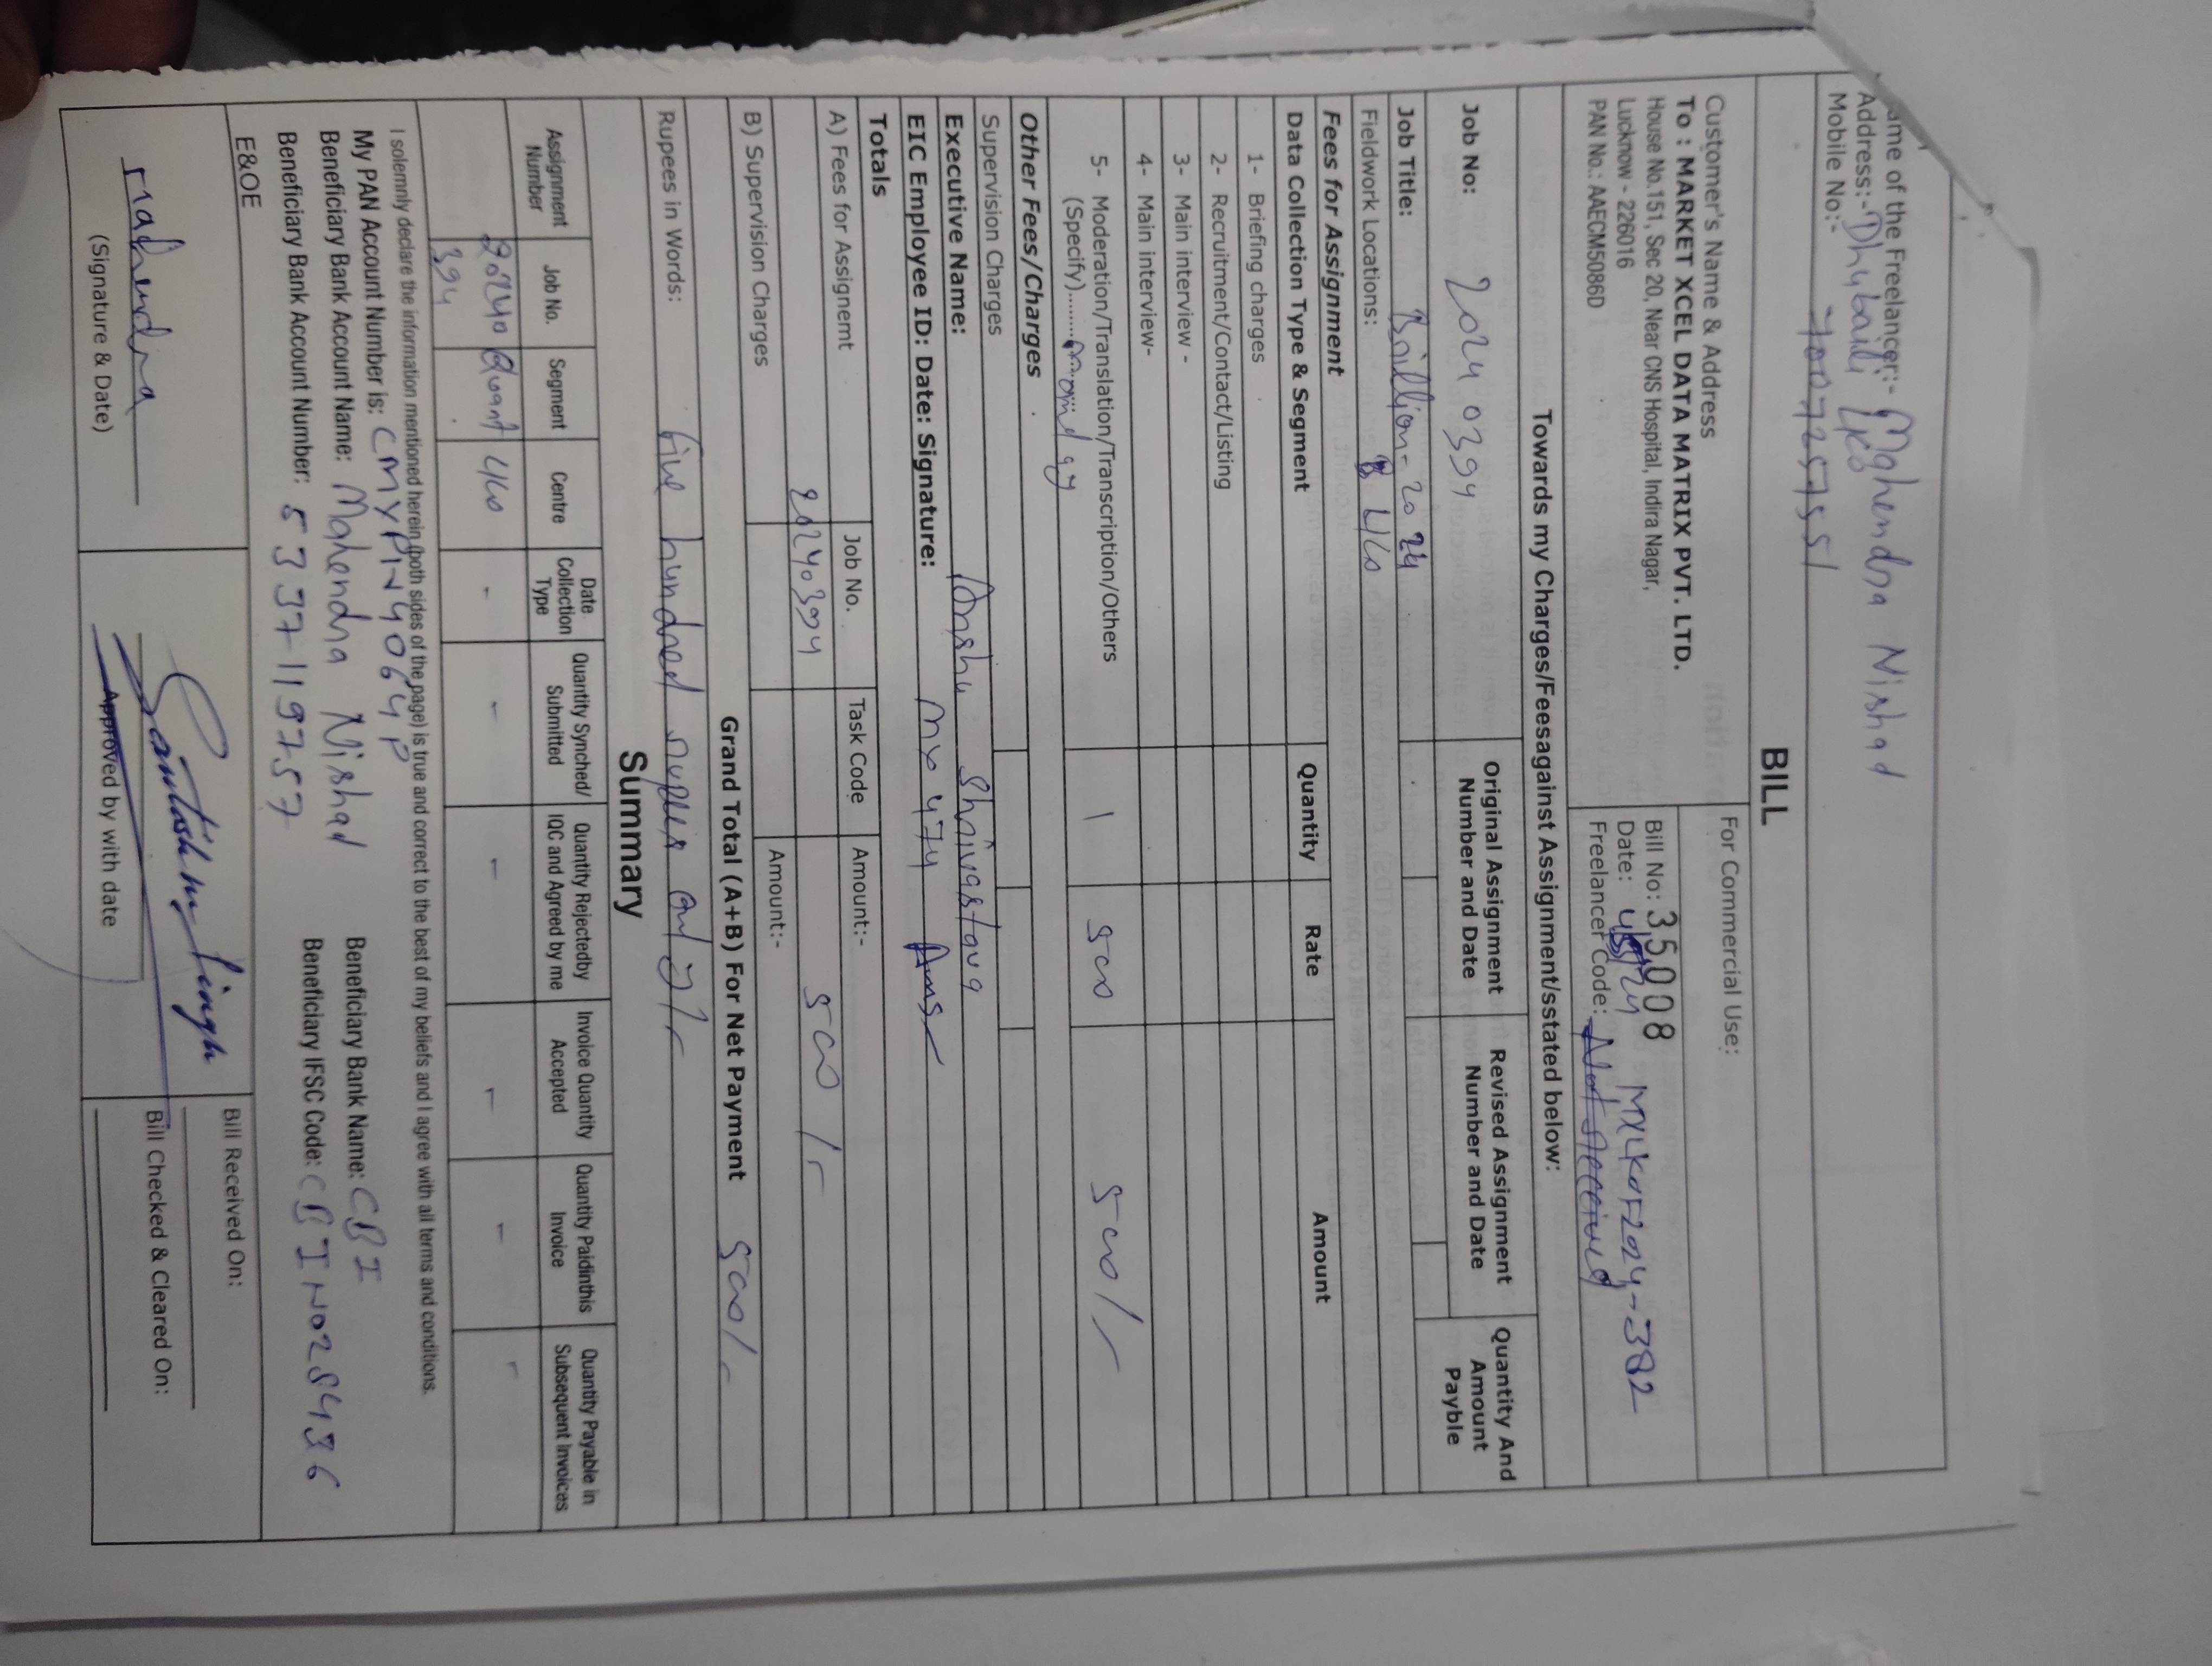 ame of the Freelancer:- Mahendra Nishad
Address:- Dhubaili
Mobile No:-
BILL
Customer's Name & Address
To : MARKET XCEL DATA MATRIX PVT. LTD.
House No.151, Sec 20, Near CNS Hospital, Indira Nagar,
Lucknow - 226016
PAN No.: AAECM5086D
For Commercial Use:
Bill No: 35008
Date:
MXLKOF2024-382
Freelancer Code:
Towards my Charges/Feesagainst Assignment/sstated below:
Job No: 20240394
Original Assignment Number and Date
Revised Assignment Number and Date
Quantity And Amount Payble
Job Title: Brillion-2024
Fieldwork Locations: LKO
Fees for Assignment
Data Collection Type & Segment Quantity Rate Amount
1- Briefing charges
2- Recruitment/Contact/Listing
3- Main interview -
4- Main interview-
5- Moderation/Translation/Transcription/Others 1 500 500/-
(Specify)........
Other Fees/Charges
Supervision Charges
Executive Name: Anshu Shrivastava
EIC Employee ID: Date: Signature: MX 474
Totals
A) Fees for Assignemt Job No. Task Code Amount:-
20240394 500/-
B) Supervision Charges Amount:-
Grand Total (A+B) For Net Payment 500/-
Rupees in Words: five hundred rupees only/-
Summary
Assignment Number Job No. Segment Centre Date Collection Type Quantity Synched/ Submitted Quantity Rejectedby IQC and Agreed by me Invoice Quantity Accepted Quantity Paidinthis Invoice Quantity Payable in Subsequent Invoices
20240 Quant LKO - - - - - -
394
I solemnly declare the information mentioned herein (both sides of the page) is true and correct to the best of my beliefs and I agree with all terms and conditions.
My PAN Account Number is: CMYPN4064P
Beneficiary Bank Account Name: Mahendra Nishad Beneficiary Bank Name: CBI
Beneficiary Bank Account Number: 5337119757 Beneficiary IFSC Code: CBIN0284936
E&OE
mahendra
(Signature & Date)
Approved by with date
Bill Received On:
Bill Checked & Cleared On: